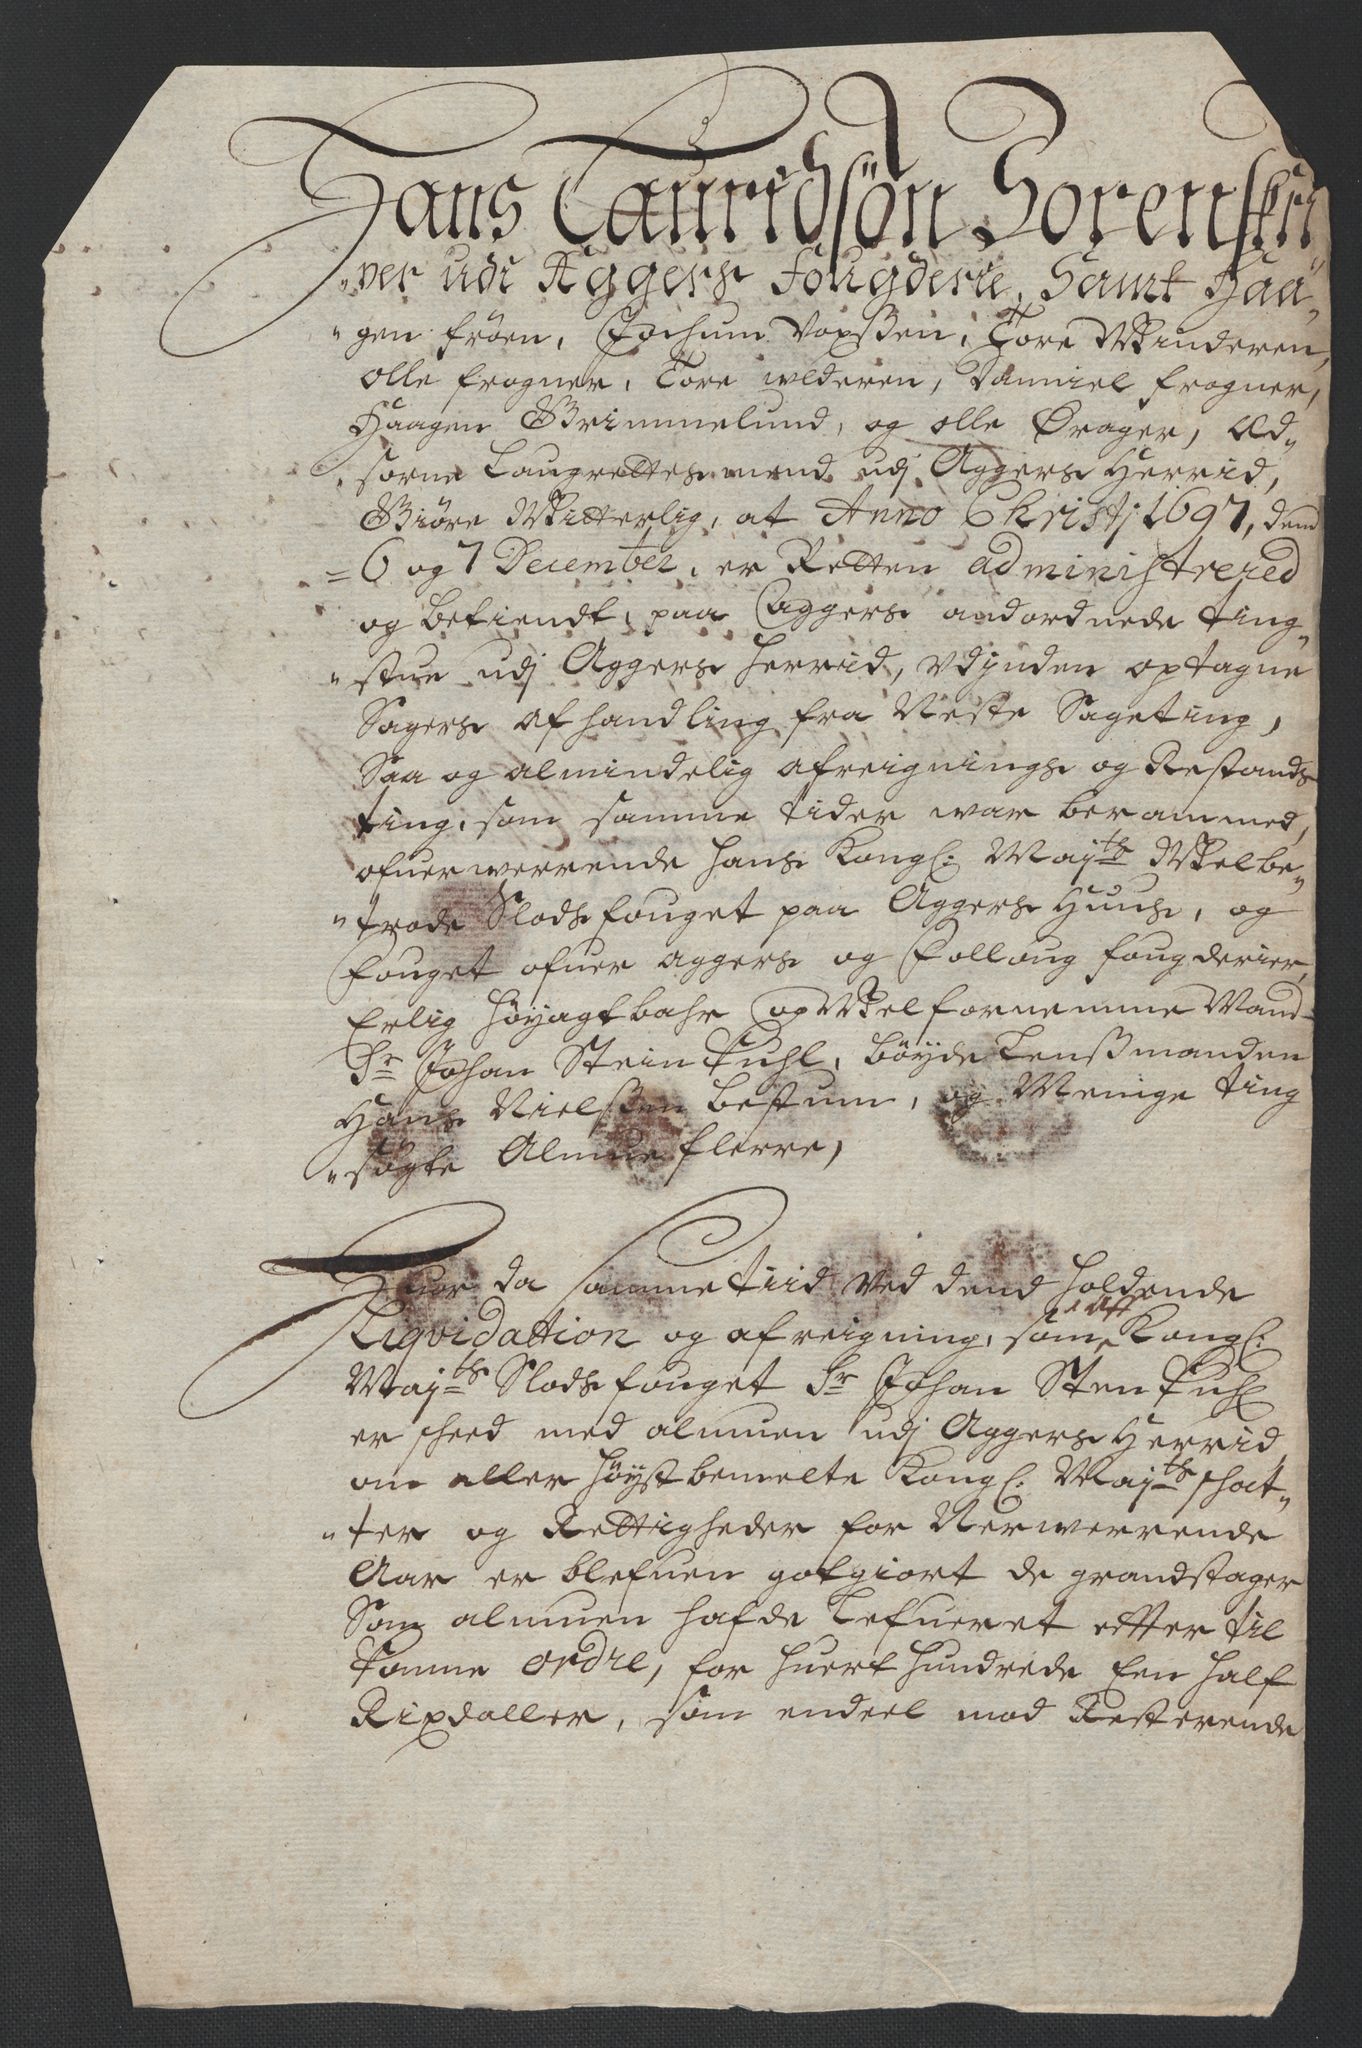 Hans Lauridsön Sorenskri
„ver udi Aggers Fougderie, Samt Haa„
„gen Frøen, Jochum Voxssen, Tore Winderen,
Olle Frogner, Tore ulderen, Danniel Frogner,
Haagen Grimmelund, og Olle Ørager, Ed„
„sorne Laugrettes mend udj Aggers Herrid,
Giøre Witterlig, at Anno Christj 1697, dend
=6 og 7 December, er Retten administrered
og betiendt, paa Aggers andordnede ting„
„stue udj Aggers Herrid, vdjnden optagne
Sagers afhandling fra Neste Sageting,
Saa og almindelig afreignings og Restands
ting, som samme tider war berammed,
ofuerwerrende hans Kongl: Majts Welbe„
„trode Slodsfouget paa Aggers Huus, og
Fouget ofuer Aggers og Folloug fougderier,
Erlig høyagtbahr og Welfornemme Mand
Sr Johan Stein Kuhl, bøyde Lenssmanden
Hans Nielssen Bestum, og Menige ting
„søgte Almue flerre,
Huor da samme tiid ved dend holdende
Liqvidation og afreigning, som Kongl:
Maijts Slodsfouget Sr Johan Sten Kuhl
er skeed med almuen udj Aggers Herrid
om aller høystbemelte Kongl: Maijts skat„
„ter og Rettigheder for Nerwerrende
Aar er blefuen gotgiort de grandstager
Som almuen hafde Lefueret efter til
komne ordre, for huert hundrede Een half
Rixdaller, som endeel mod Resterende